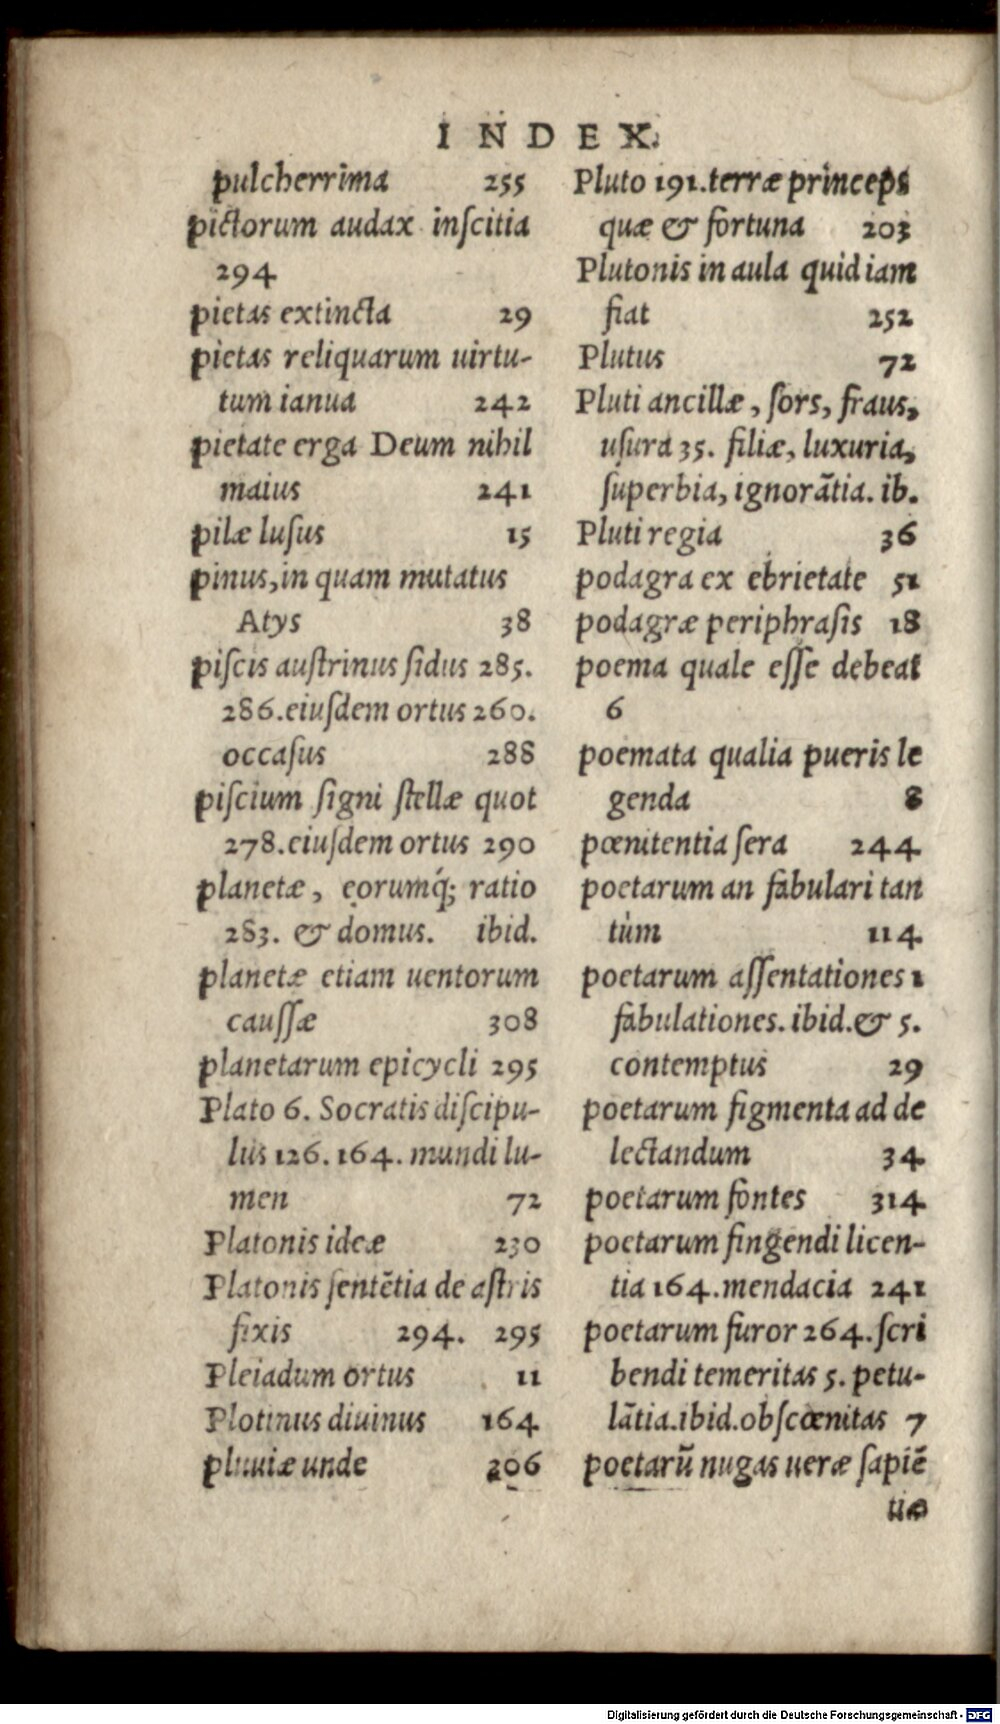 INDEX.
pulcherrima 255
pictorum audax inſcitia
294
pietas extincta 29
pietas reliquarum uirtu-
tum ianua 242
pietate erga Deum nihil
maius 241
pilæ luſus 15
pinus, in quam mutatus
Atys 38
piſcis auſtrinus ſidus 285.
286. eiuſdem ortus 260.
occaſus 288
piſcium ſigni ſtellæ quot
278. eiuſdem ortus 290
planetæ, eorumq́; ratio
283. & domus. ibid.
planetæ etiam uentorum
cauſſæ 308
planetarum epicycli 295
Plato 6. Socratis diſcipu-
lus 126. 164. mundi lu-
men 72
Platonis ideæ 230
Platonis ſentẽtia de aſtris
fixis 294. 295
Pleiadum ortus 11
Plotinus diuinus 164
pluuiæ unde 206
Pluto 191. terræ princeps
quæ & fortuna 203
Plutonis in aula quid iam
fiat 252
Plutus 72
Pluti ancillæ, ſors, fraus,
uſura 35. filiæ, luxuria,
ſuperbia, ignorãtia. ib.
Pluti regia 36
podagra ex ebrietate 51
podagræ periphraſis 18
poema quale eſſe debeat
6
poemata qualia pueris le
genda 8
pœnitentia ſera 244
poetarum an fabulari tan
tùm 114
poetarum aſſentationes 1
fabulationes. ibid. & 5.
contemptus 29
poetarum figmenta ad de
lectandum 34
poetarum fontes 314
poetarum fingendi licen-
tia 164. mendacia 241
poetarum furor 264. ſcri
bendi temeritas 5. petu-
lãtia. ibid. obſcœnitas 7
poetarũ nugas ueræ ſapiẽ
tiæ
Digitalisierung gefördert durch die Deutsche Forschungsgemeinschaft - DFG